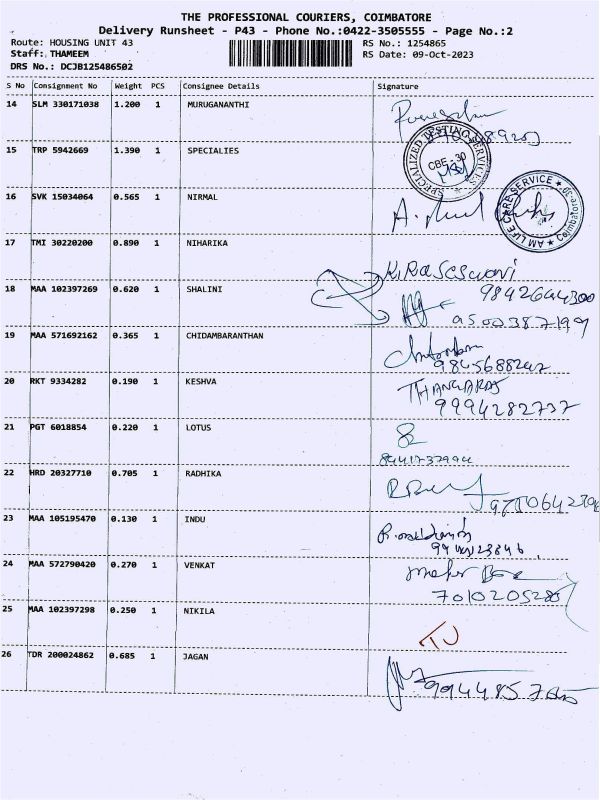 THE PROFESSIONAL COURIERS, COIMBATORE
Delivery Runsheet - P43 - Phone No.:0422-3505555 - Page No.:2
Route: HOUSING UNIT 43
RS No.: 1254865
Staff: THAMEEM
RS Date: 09-Oct-2023
DRS No.: DCJB125486502
S No Consignment No Weight PCS Consignee Details Signature
14 SLM 330171038 1.200 1 MURUGANANTHI
15 TRP 5942669 1.390 1 SPECIALIES
SPECIALIZED TESTING SERVICES
CBE - 30
16 SVK 15034064 0.565 1 NIRMAL
I AM LIFE CARE SERVICE
Coimbatore-30
17 TMI 30220200 0.890 1 NIHARIKA
9842644300
18 MAA 102397269 0.620 1 SHALINI
9500387199
19 MAA 571692162 0.365 1 CHIDAMBARANTHAN
20 RKT 9334282 0.190 1 KESHVA
THANGARAJ
9994282737
21 PGT 6018854 0.220 1 LOTUS
22 HRD 20327710 0.705 1 RADHIKA
23 MAA 105195470 0.130 1 INDU
24 MAA 572790420 0.270 1 VENKAT
7010205285
25 MAA 102397298 0.250 1 NIKILA
26 TDR 200024862 0.685 1 JAGAN